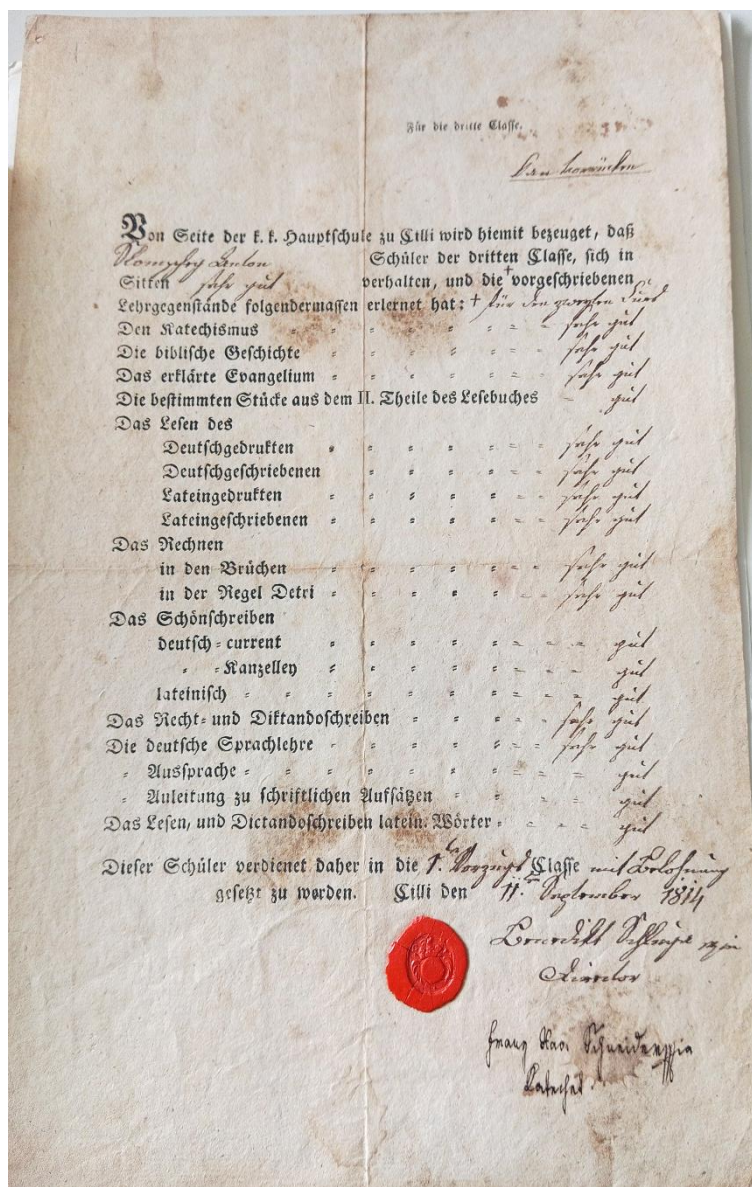 Für die dritte Classe.
Von Seite der k. k. Hauptschule zu Cilli wird hiemit bezeuget, daß
Anton Schüler der dritten Classe, sich in
Sitten sehr gut verhalten, und die + vorgeschriebenen
Lehrgegenstände folgendermassen erlernet hat: + für den zweyten Curs
Den Katechismus sehr gut
Die biblische Geschichte sehr gut
Das erklärte Evangelium sehr gut
Die bestimmten Stücke aus dem II. Theile des Lesebuches gut
Das Lesen des
Deutschgedrukten sehr gut
Deutschgeschriebenen sehr gut
Lateingedrukten sehr gut
Lateingeschriebenen sehr gut
Das Rechnen
in den Brüchen sehr gut
in der Regel Detri sehr gut
Das Schönschreiben
deutsch-current gut
- -Kanzelley gut
lateinisch gut
Das Recht- und Diktandoschreiben sehr gut
Die deutsche Sprachlehre sehr gut
- Aussprache gut
- Anleitung zu schriftlichen Aufsätzen gut
Das Lesen, und Dictandoschreiben latein. Wörter gut
Dieser Schüler verdienet daher in die 1. Vorzugs Classe mit Belohnung
gesetzt zu werden. Cilli den 11. September 1814
Benedikt
Director
Franz Xav. Schneider
Katechet